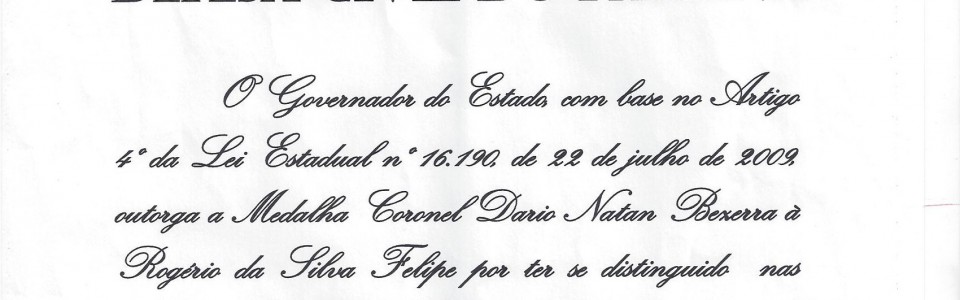 O Governador do Estado, com base no Artigo
4º da Lei Estadual nº 16.190, de 22 de julho de 2009,
outorga a Medalha Coronel Dario Natan Bezerra à
Rogério da Silva Felipe por ter se distinguido nas